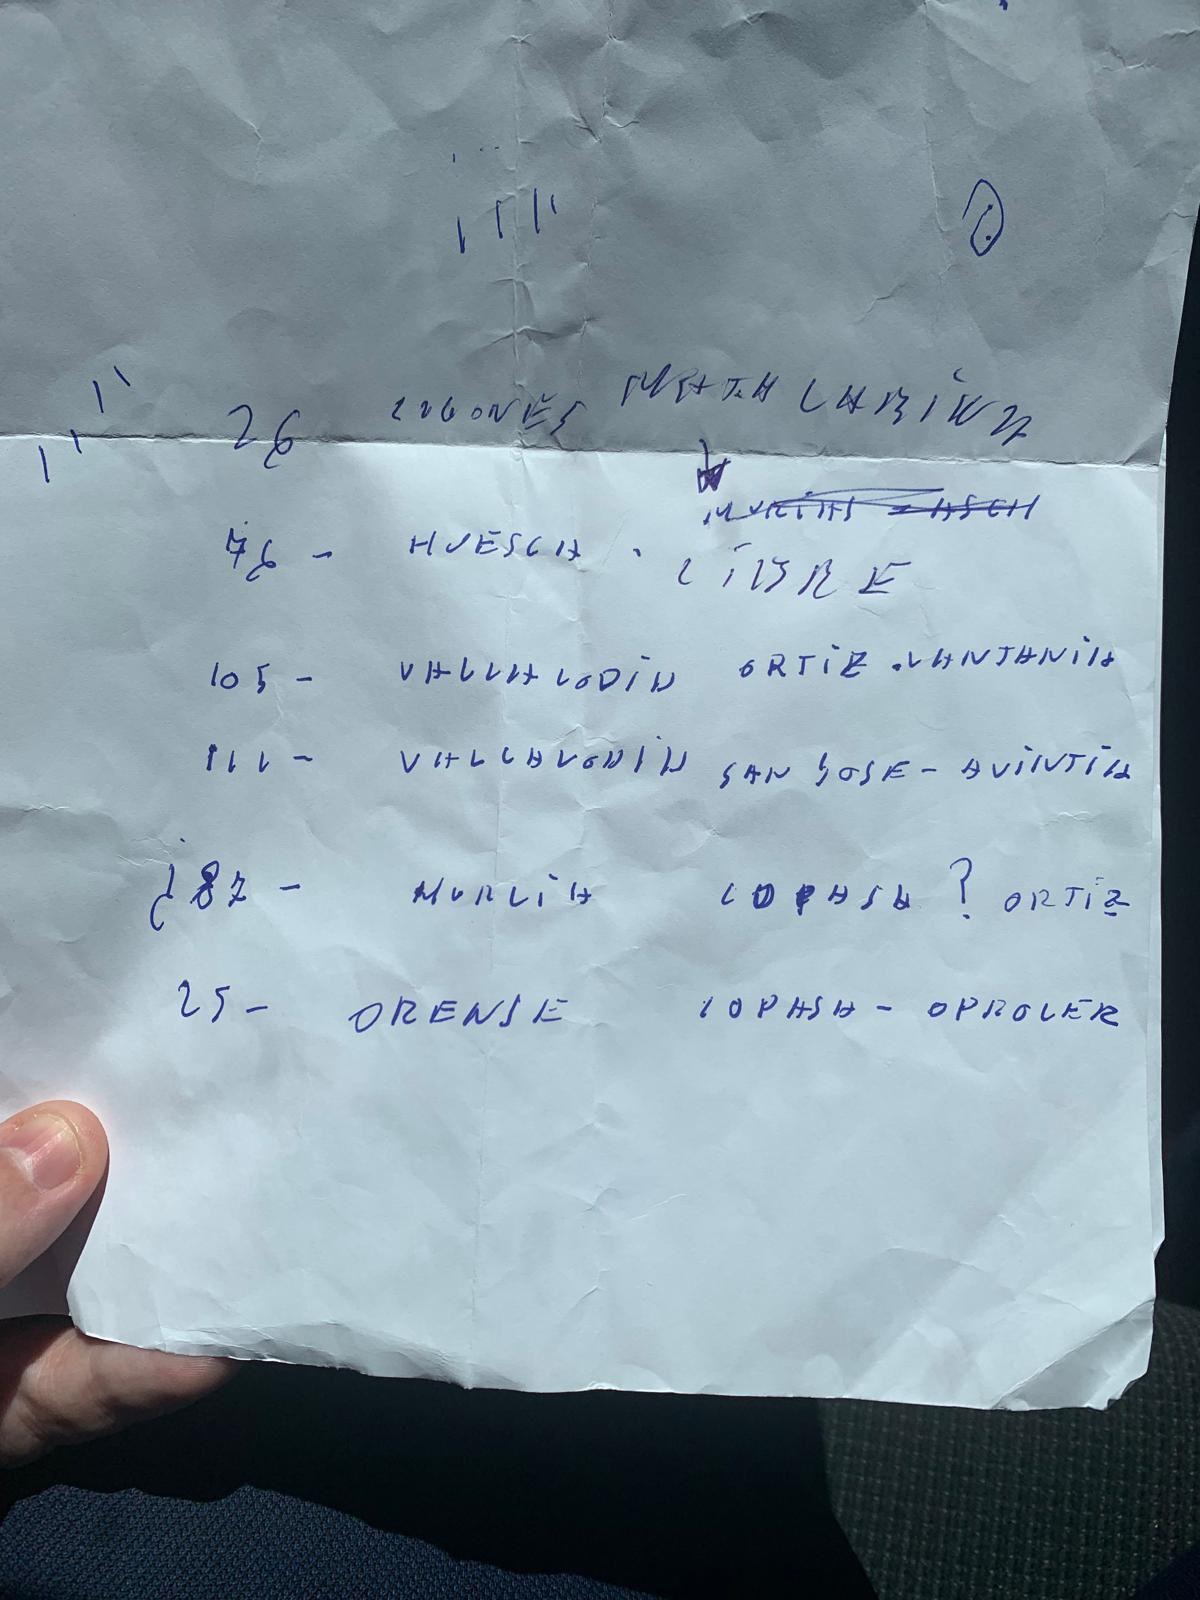 26 LUGONES MATA LARINZ
76 - HUESCA . LIBRE
105 - VALLALODID ORTIZ . CANTANIA
111 - VALLALODID SAN JOSE - AVINTIA
¿87 - MURCIA COPASA ? ORTIZ
25 - ORENSE COPASA - OPROLER